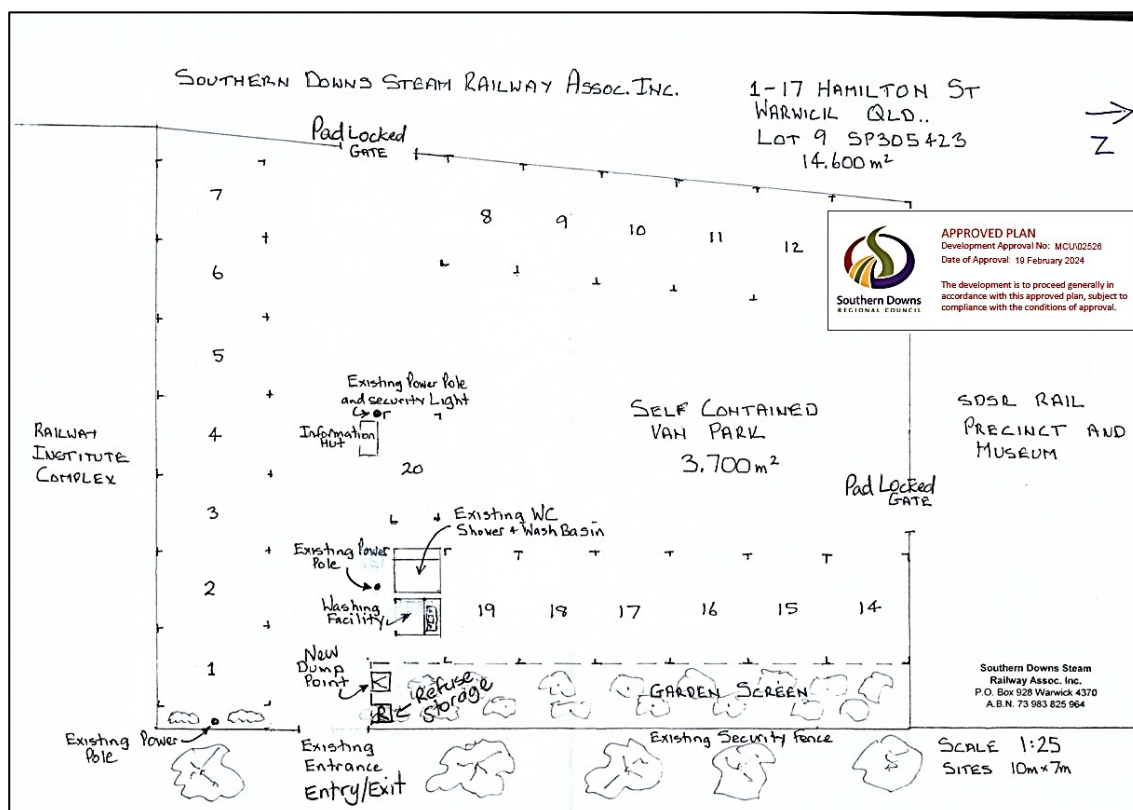 SOUTHERN DOWNS STEAM RAILWAY ASSOC. INC.
1-17 HAMILTON ST
WARWICK QLD..
LOT 9 SP305423
14.600 m²
Z
Pad Locked
GATE
7
8
9
10
11
12
6
APPROVED PLAN
Development Approval No: MCU\02526
Date of Approval: 19 February 2024
The development is to proceed generally in
accordance with this approved plan, subject to
compliance with the conditions of approval.
Southern Downs
REGIONAL COUNCIL
5
Existing Power Pole
and security Light
Information
Hut
4
20
RAILWAY
INSTITUTE
COMPLEX
SELF CONTAINED
VAN PARK
3.700 m²
SDSR RAIL
PRECINCT AND
MUSEUM
Pad Locked
GATE
3
Existing WC
Shower + Wash Basin
Existing Power
Pole
2
Washing
Facility
19
18
17
16
15
14
New
Dump
Point
1
Refuse
Storage
R
GARDEN SCREEN
Southern Downs Steam
Railway Assoc. Inc.
P.O. Box 928 Warwick 4370
A.B.N. 73 983 825 964
Existing Power
Pole
Existing
Entrance
Entry/Exit
Existing Security Fence
SCALE 1:25
SITES 10m x 7m